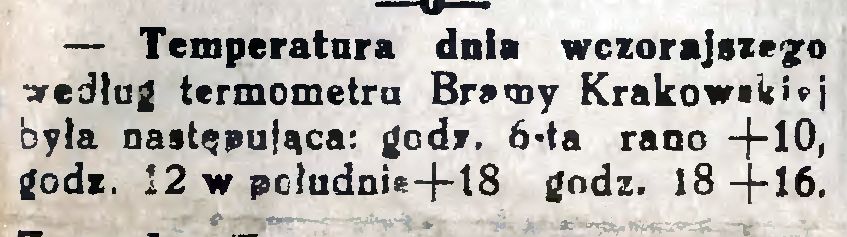 — Temperatura dnia wczorajszego
według termometru Bramy Krakowskiej
była następująca: godz. 6-ta rano +10,
godz. 12 w południe +18 godz. 18 +16.